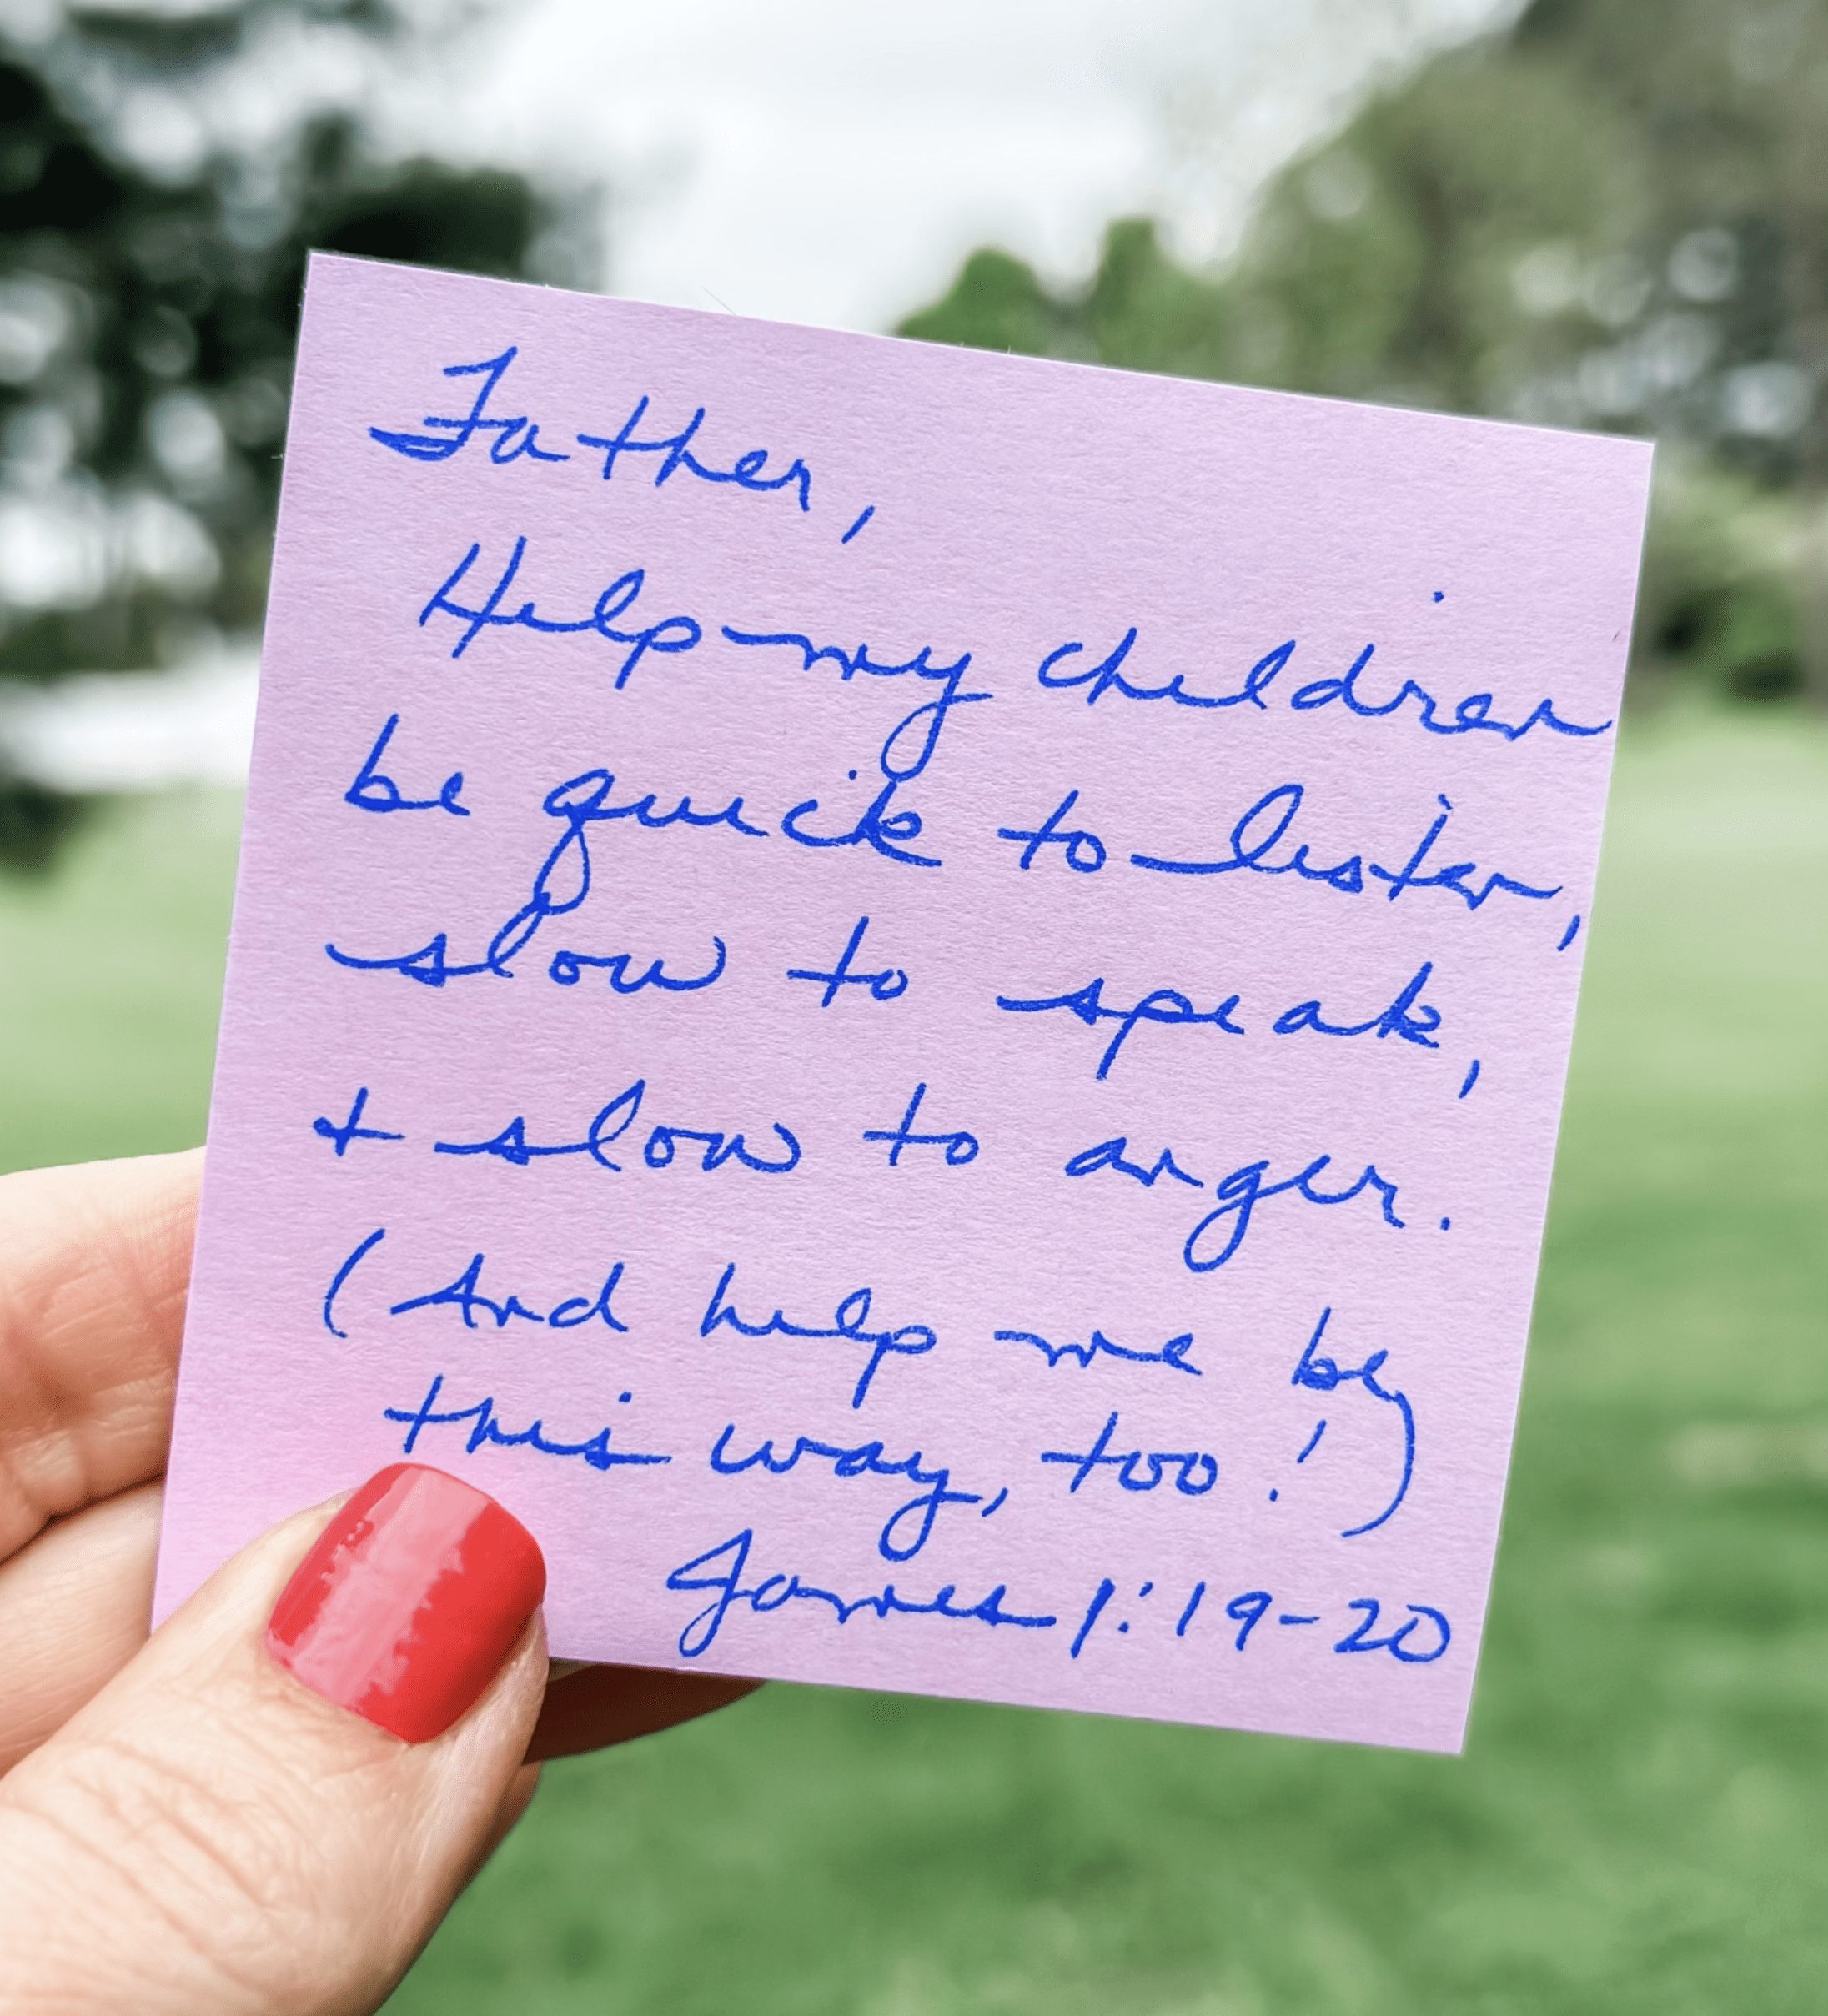 Father,
Help my children
be quick to listen,
slow to speak,
+ slow to anger.
(And help me be
this way, too!)
James 1:19-20